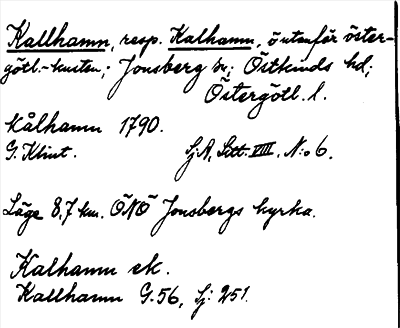 Kallhamn, resp. Kalhamn, ö utanför öster-
götl.-kusten; Jonsberg sn; Östkinds hd;
Östergötl. l.
Kålhamn 1790.
G. Klint. SjA, Litt. VIII, N:o 6.
Läge 8,7 km. ÖNÖ Jonsbergs kyrka.
Kalhamn ek.
Kallhamn G.56, Sj: 251.